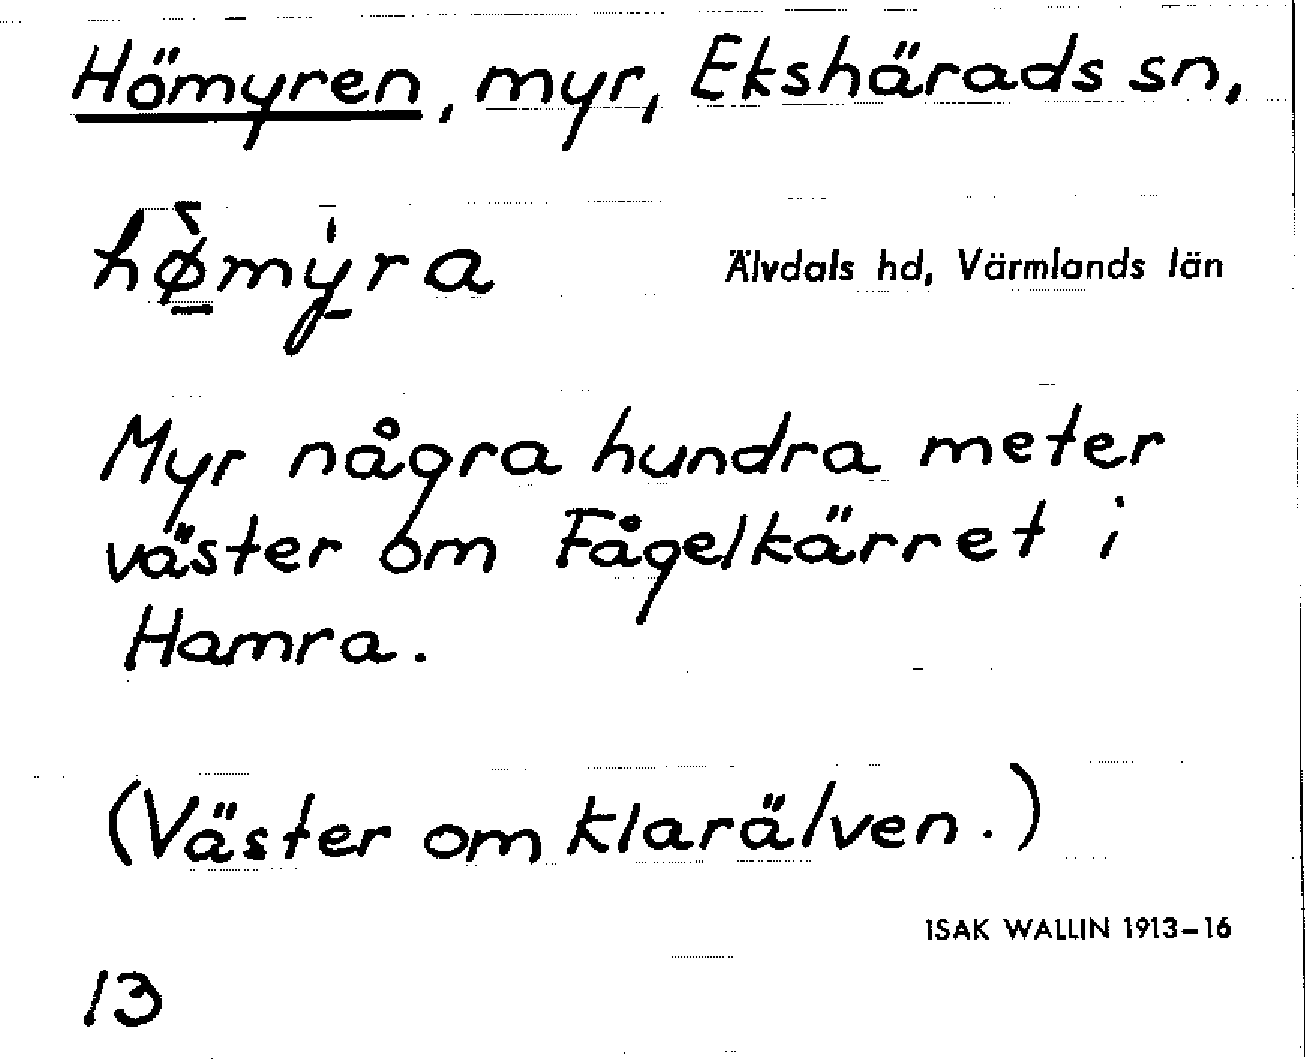 Hömyren, myr, Ekshärads sn,
hø̠̀my̠̍ra
Älvdals hd, Värmlands län
Myr några hundra meter
väster om Fågelkärret i
Hamra.
(Väster om Klarälven.)
ISAK WALLIN 1913–16
13